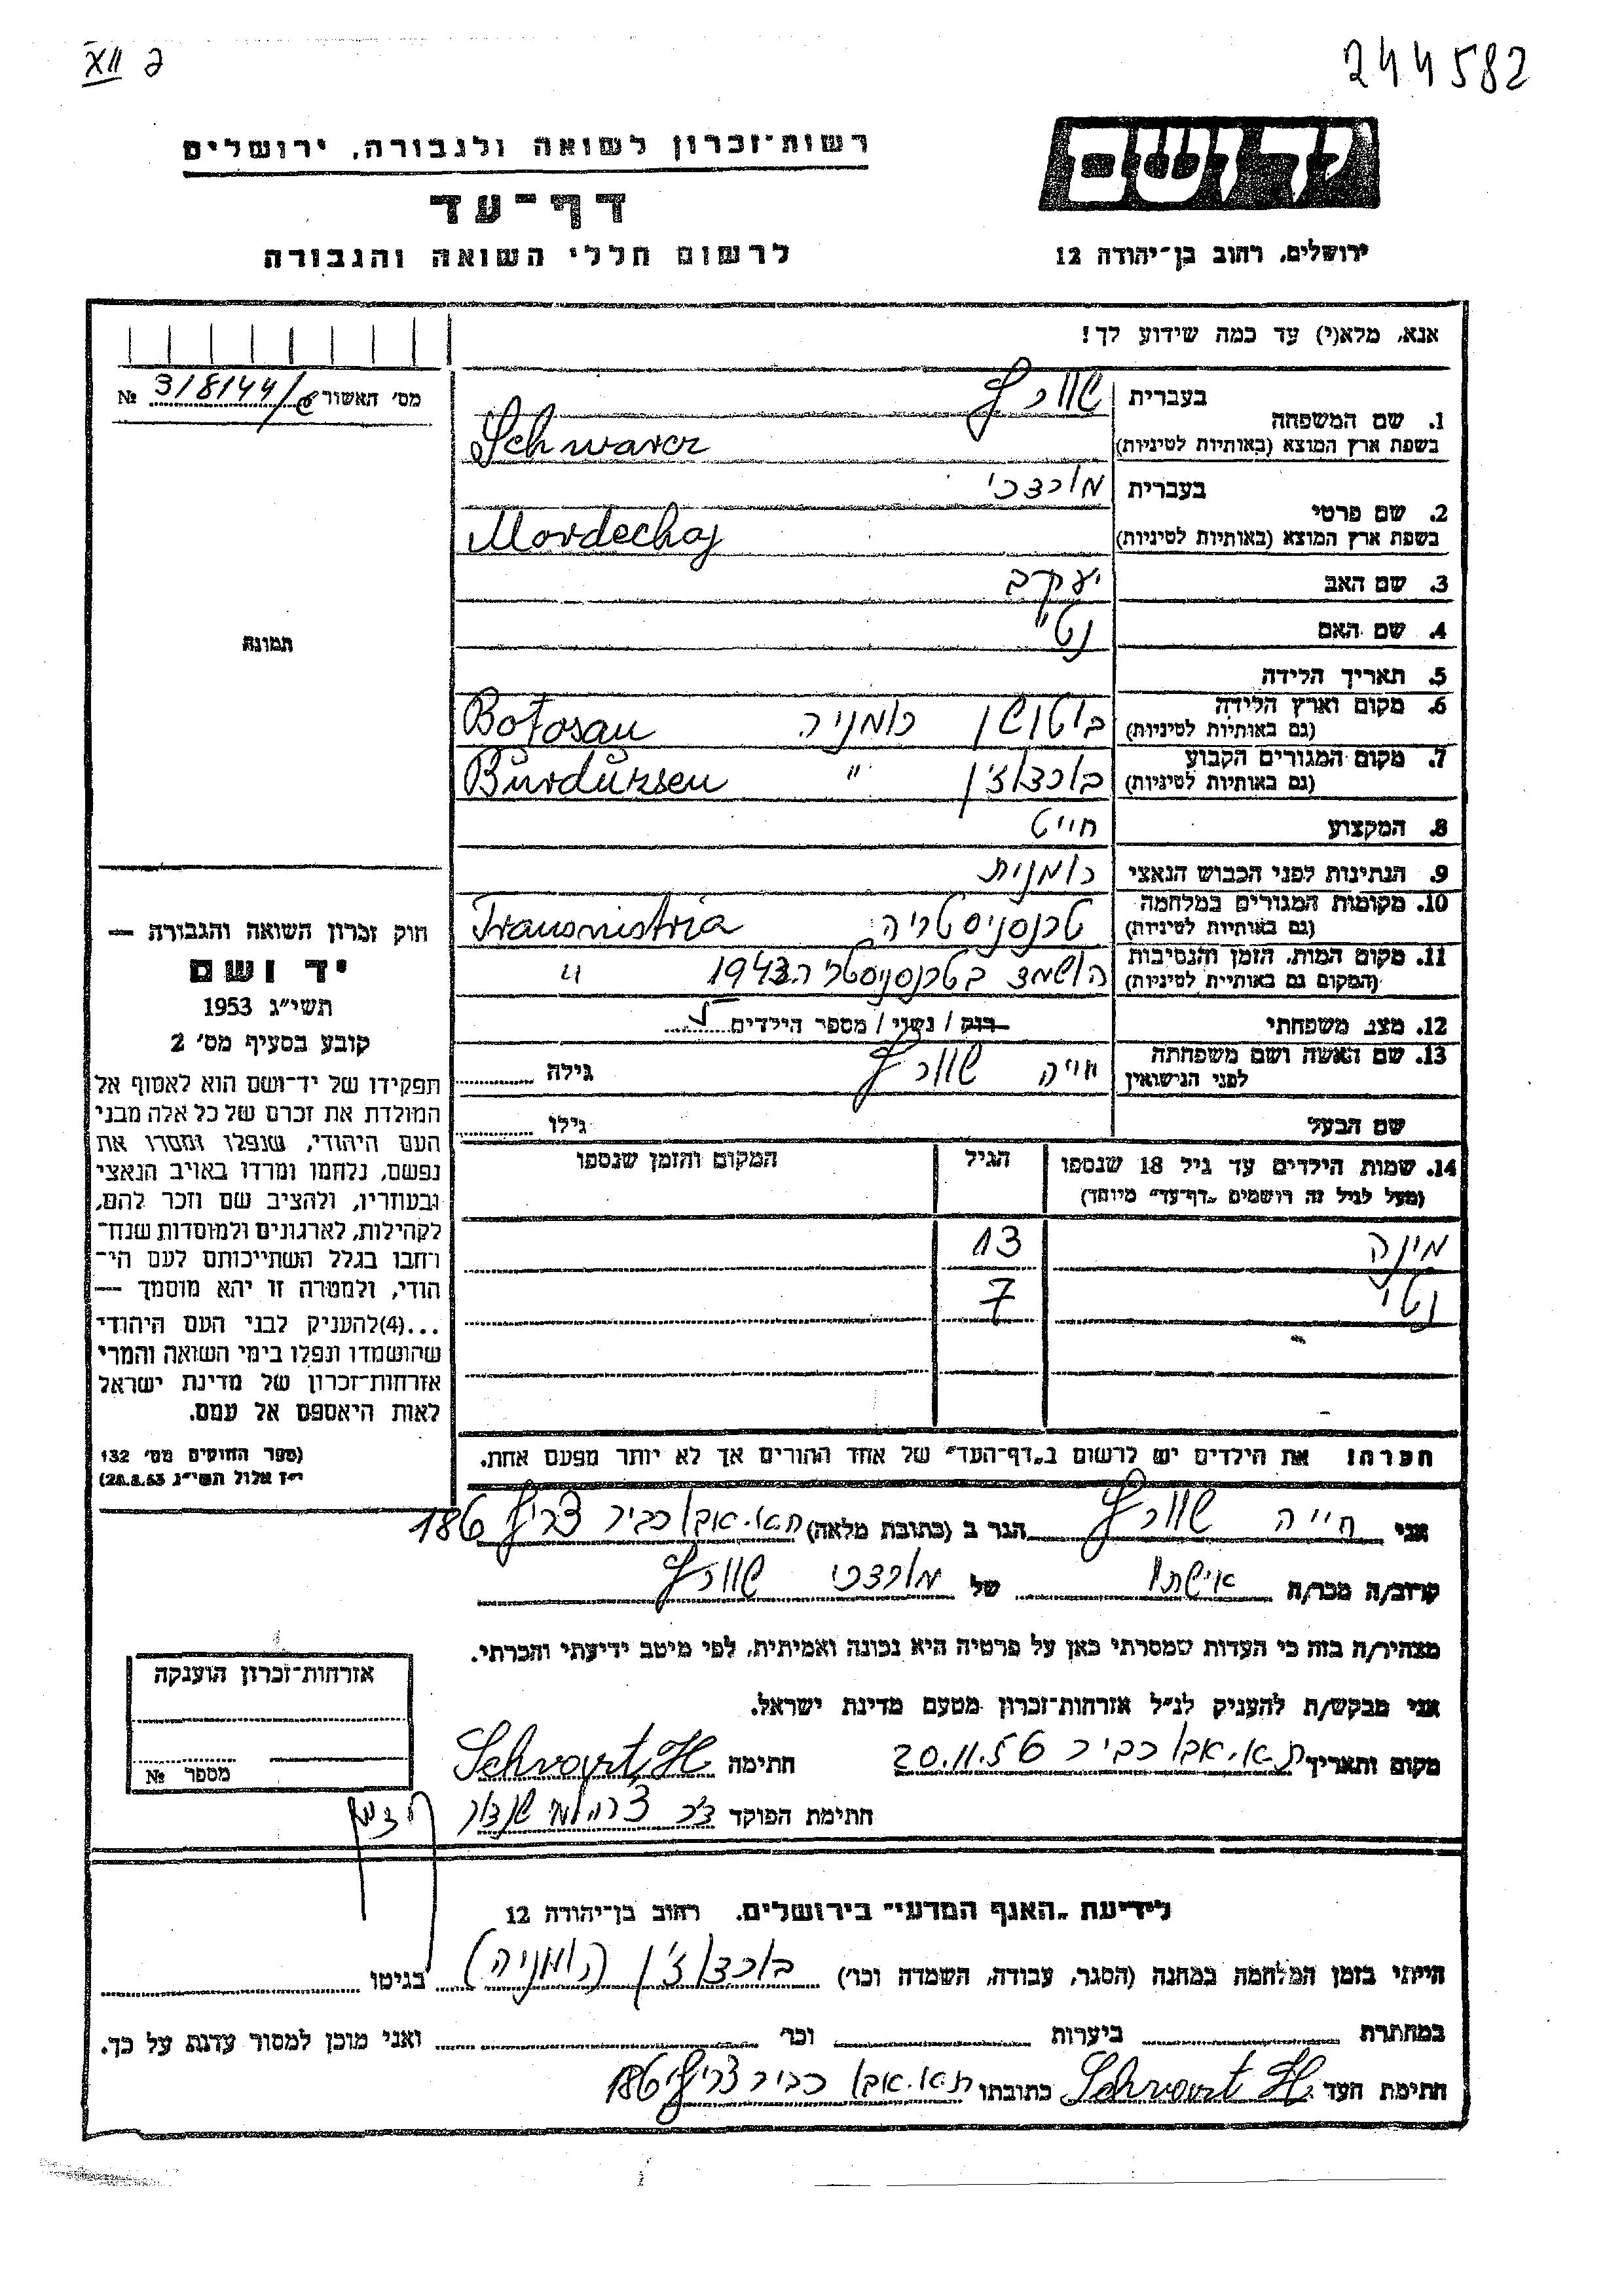 XII 2
244582
רשות־זכרון לשואה ולגבורה, ירושלים
דף־עד
לרשום חללי השואה והגבורה
יד ושם
ירושלים, רחוב בן־יהודה 12
אנא, מלא(י) עד כמה שידוע לך!
מס' האשור 318144/ №
1. שם המשפחה בעברית שוורץ
בשפת ארץ המוצא (באותיות לטיניות) Schwarcz
2. שם פרטי בעברית מורדכי
בשפת ארץ המוצא (באותיות לטיניות) Mordechaj
3. שם האב יעקב
4. שם האם נטי
תמונה
5. תאריך הלידה
6. מקום וארץ הלידה (גם באותיות לטיניות) בוטושן רומניה Botosan
7. מקום המגורים הקבוע (גם באותיות לטיניות) בורדוז'ן " Burdüzsen
8. המקצוע חייט
9. הנתינות לפני הכבוש הנאצי רומנית
10. מקומות המגורים במלחמה (גם באותיות לטיניות) טרנסניסטריה Transnistria
11. מקום המות, הזמן והנסיבות (המקום גם באותיות לטיניות) הושמד בטרנסניסטריה 1943 "
12. מצב משפחתי רווק / נשוי / מספר הילדים 5
13. שם האשה ושם משפחתה לפני הנישואין חייה שוורץ גילה
שם הבעל גילו
14. שמות הילדים עד גיל 18 שנספו הגיל המקום והזמן שנספו
(מעל לגיל זה רושמים „דף־עד" מיוחד)
מינה 13
נטי 7
הערה! את הילדים יש לרשום ב„דף־העד" של אחד ההורים אך לא יותר מפעם אחת.
חוק זכרון השואה והגבורה —
יד ושם
תשי"ג 1953
קובע בסעיף מס' 2
תפקידו של יד־ושם הוא לאסוף אל
המולדת את זכרם של כל אלה מבני
העם היהודי, שנפלו ומסרו את
נפשם, נלחמו ומרדו באויב הנאצי
ובעוזריו, ולהציב שם וזכר להם,
לקהילות, לארגונים ולמוסדות שנח־
רחבו בגלל השתייכותם לעם הי־
הודי, ולמטרה זו יהא מוסמך —
...(4)להעניק לבני העם היהודי
שהושמדו ונפלו בימי השואה והמרי
אזרחות־זכרון של מדינת ישראל
לאות היאספם אל עמם.
(ספר החוקים מס' 132
י"ז אלול תשי"ג 28.8.53)
אני חייה שוורץ הגר ב (כתובת מלאה) ת.א. אבו כביר צריף 186
קרוב/ה מכר/ה אישתו של מורדכי שוורץ
מצהיר/ה בזה כי העדות שמסרתי כאן על פרטיה היא נכונה ואמיתית, לפי מיטב ידיעתי והכרתי.
אני מבקש/ת להעניק לנ"ל אזרחות־זכרון מטעם מדינת ישראל.
מקום ותאריך ת.א. אבו כביר 20.11.56 חתימה Schvart H
חתימת הפוקד
אזרחות־זכרון הוענקה
מספר №
לידיעת „האגף המדעי" בירושלים. רחוב בן־יהודה 12
הייתי בזמן המלחמה במחנה (הסגר, עבודה, השמדה וכו') בורדוז'ן (רומניה) בגיטו
במחתרת ביערות וכו' ואני מוכן למסור עדות על כך.
חתימת העד Schvart H. כתובתו ת.א. אבו כביר צריף 186